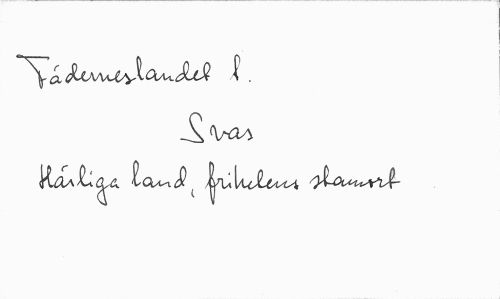 Fäderneslandet l.
Svas
Härliga land, frihetens stamort